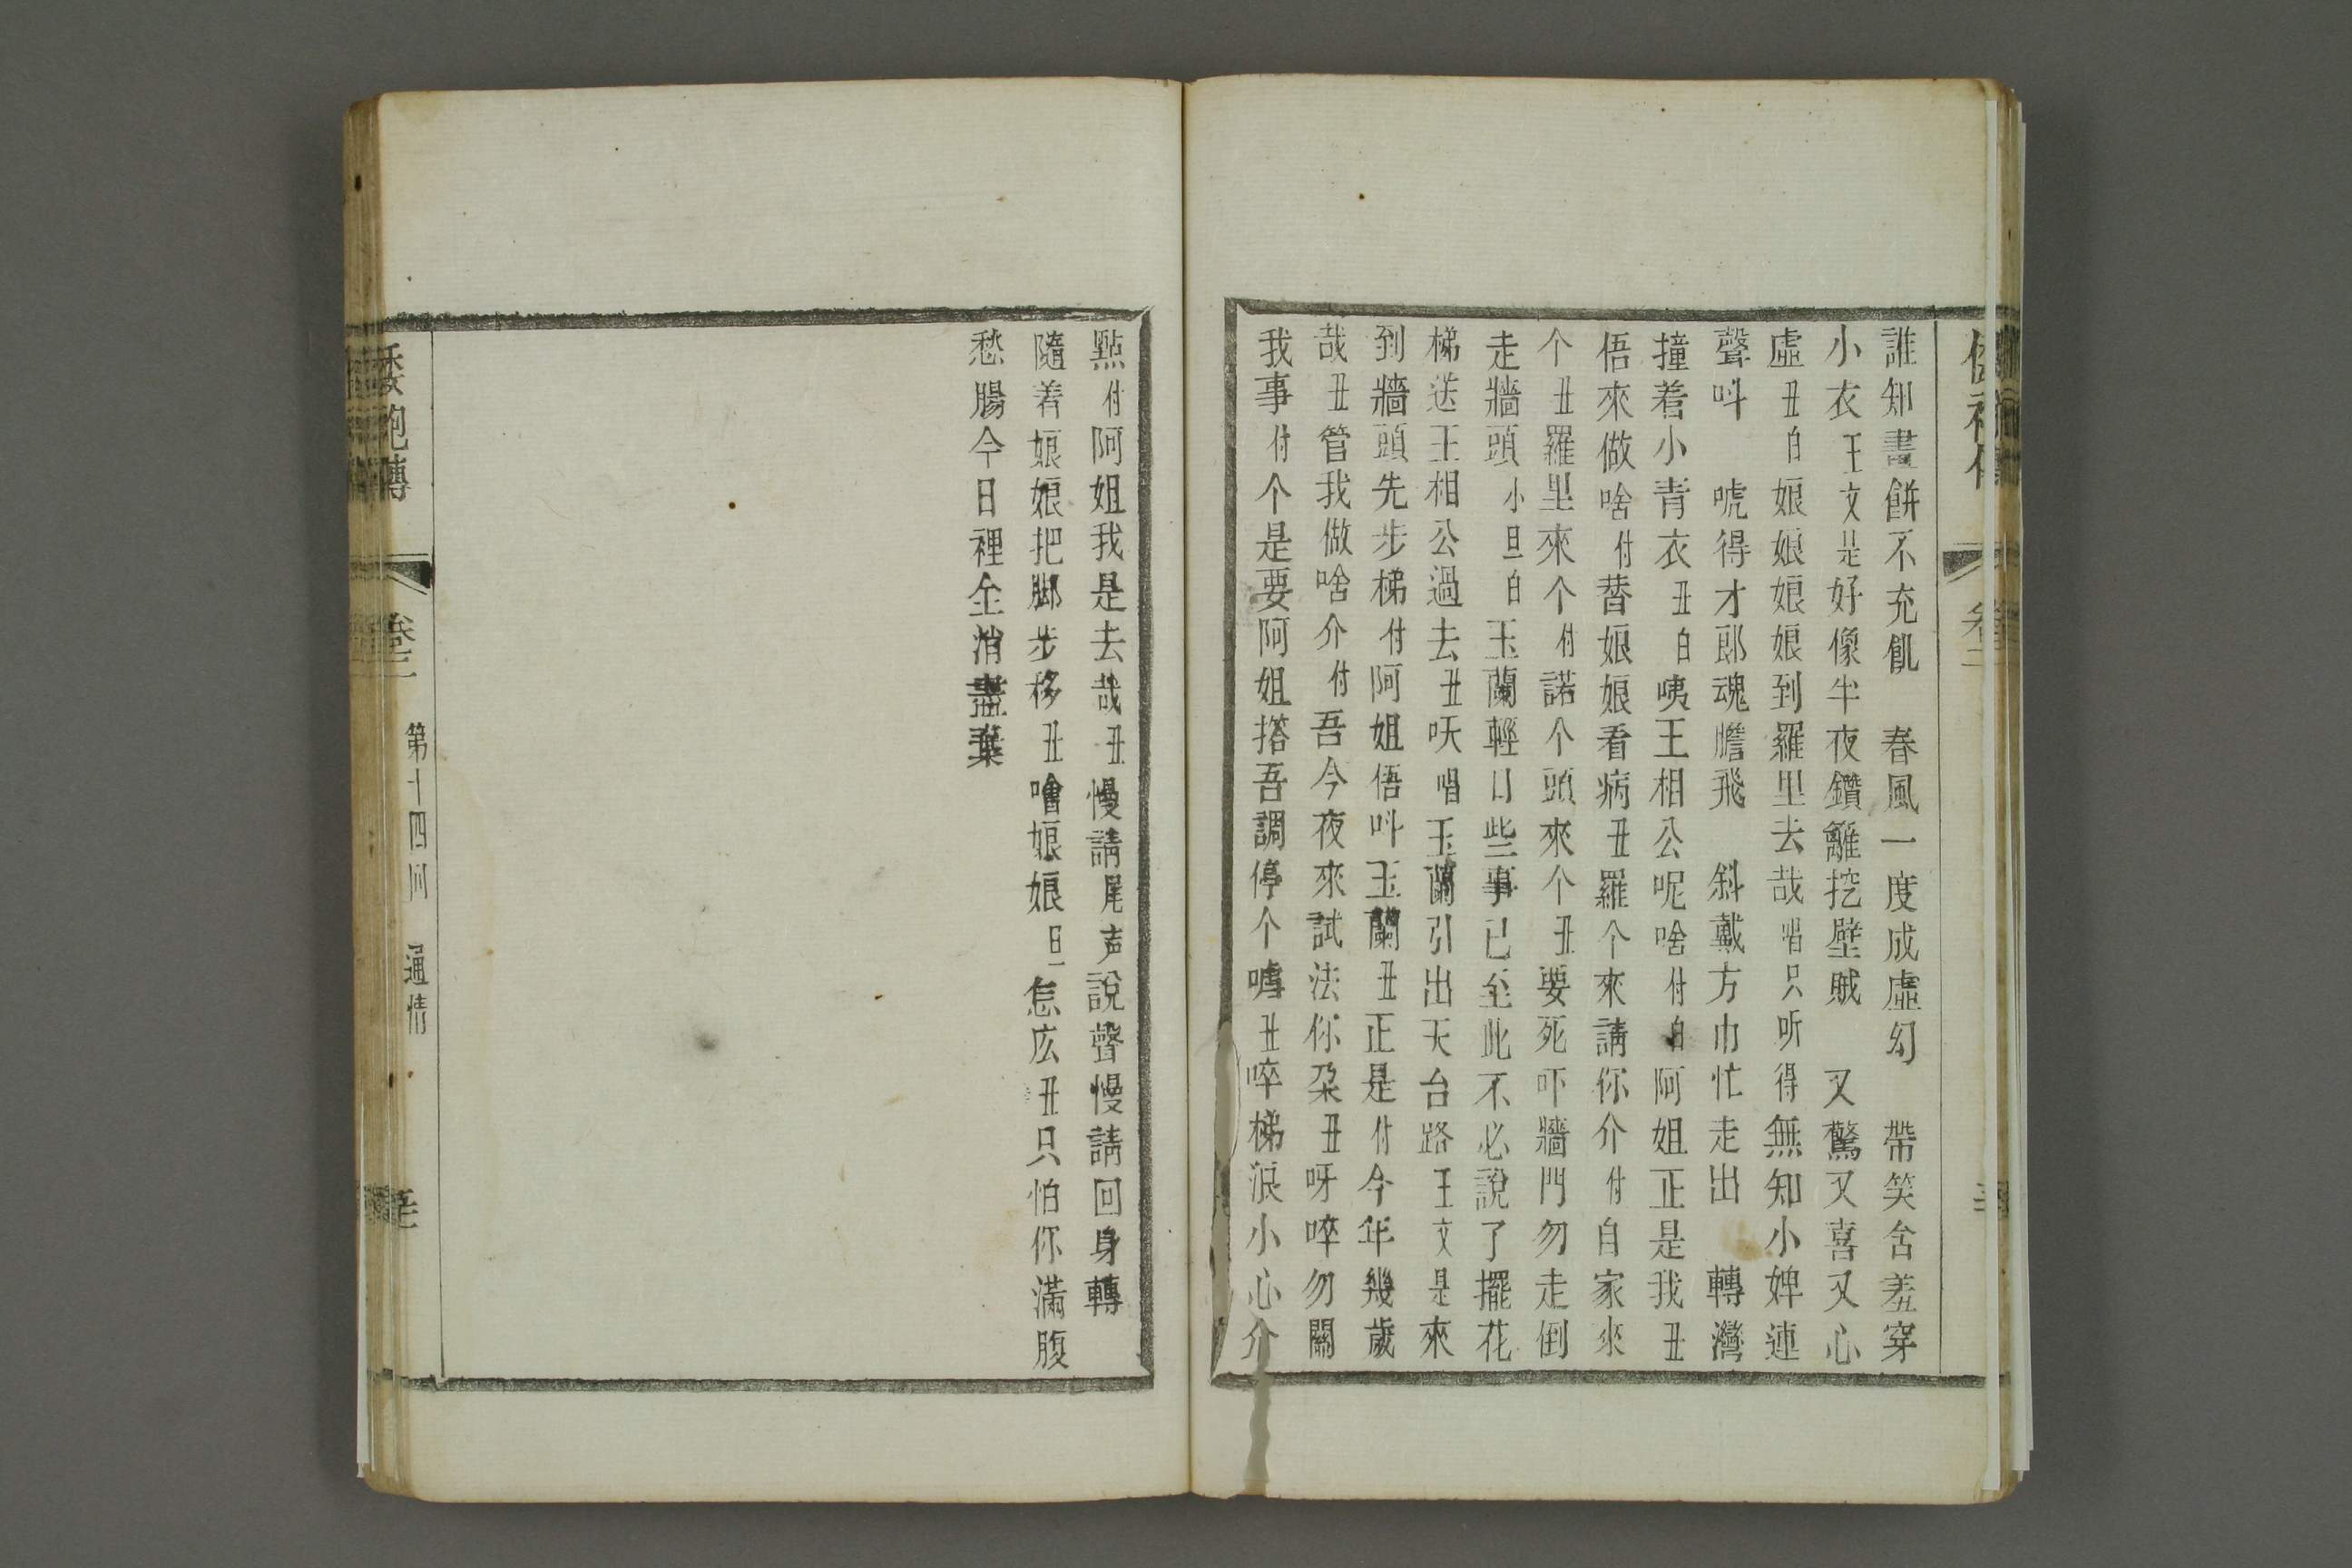 誰知畫餅不充飢　春風一度成虛幻　帶笑含羞穿
小衣王文是好像半夜鑽籬挖壁賊　又驚又喜又心
虛丑白娘娘娘娘到羅里去哉唱只听得無知小婢連
聲呌　唬得才郎魂膽飛　斜戴方巾忙走出　轉灣
撞着小青衣丑白咦王相公呢啥付白阿姐正是我丑
俉來做啥付替娘娘看病丑羅个來請你介付自家來
个丑羅里來个付諾个頭來个丑要死吓牆門勿走倒
走牆頭小旦白玉蘭輕口些事已至此不必說了擺花
梯送王相公過去丑呅唱玉蘭引出天台路王文是來
到牆頭先步梯付阿姐俉呌玉蘭丑正是付今年幾歲
哉丑管我做啥介付吾今夜來試法你朶丑呀啐勿關
我事付个是要阿姐搭吾調停个嘑丑啐梯滾小心介
點付阿姐我是去哉丑慢請尾声說聲慢請回身轉
隨着娘娘把脚步移丑噲娘娘旦怎庅丑只怕你滿腹
愁腸今日裡全消盡棄
倭袍傳　卷二　第十四回　通情